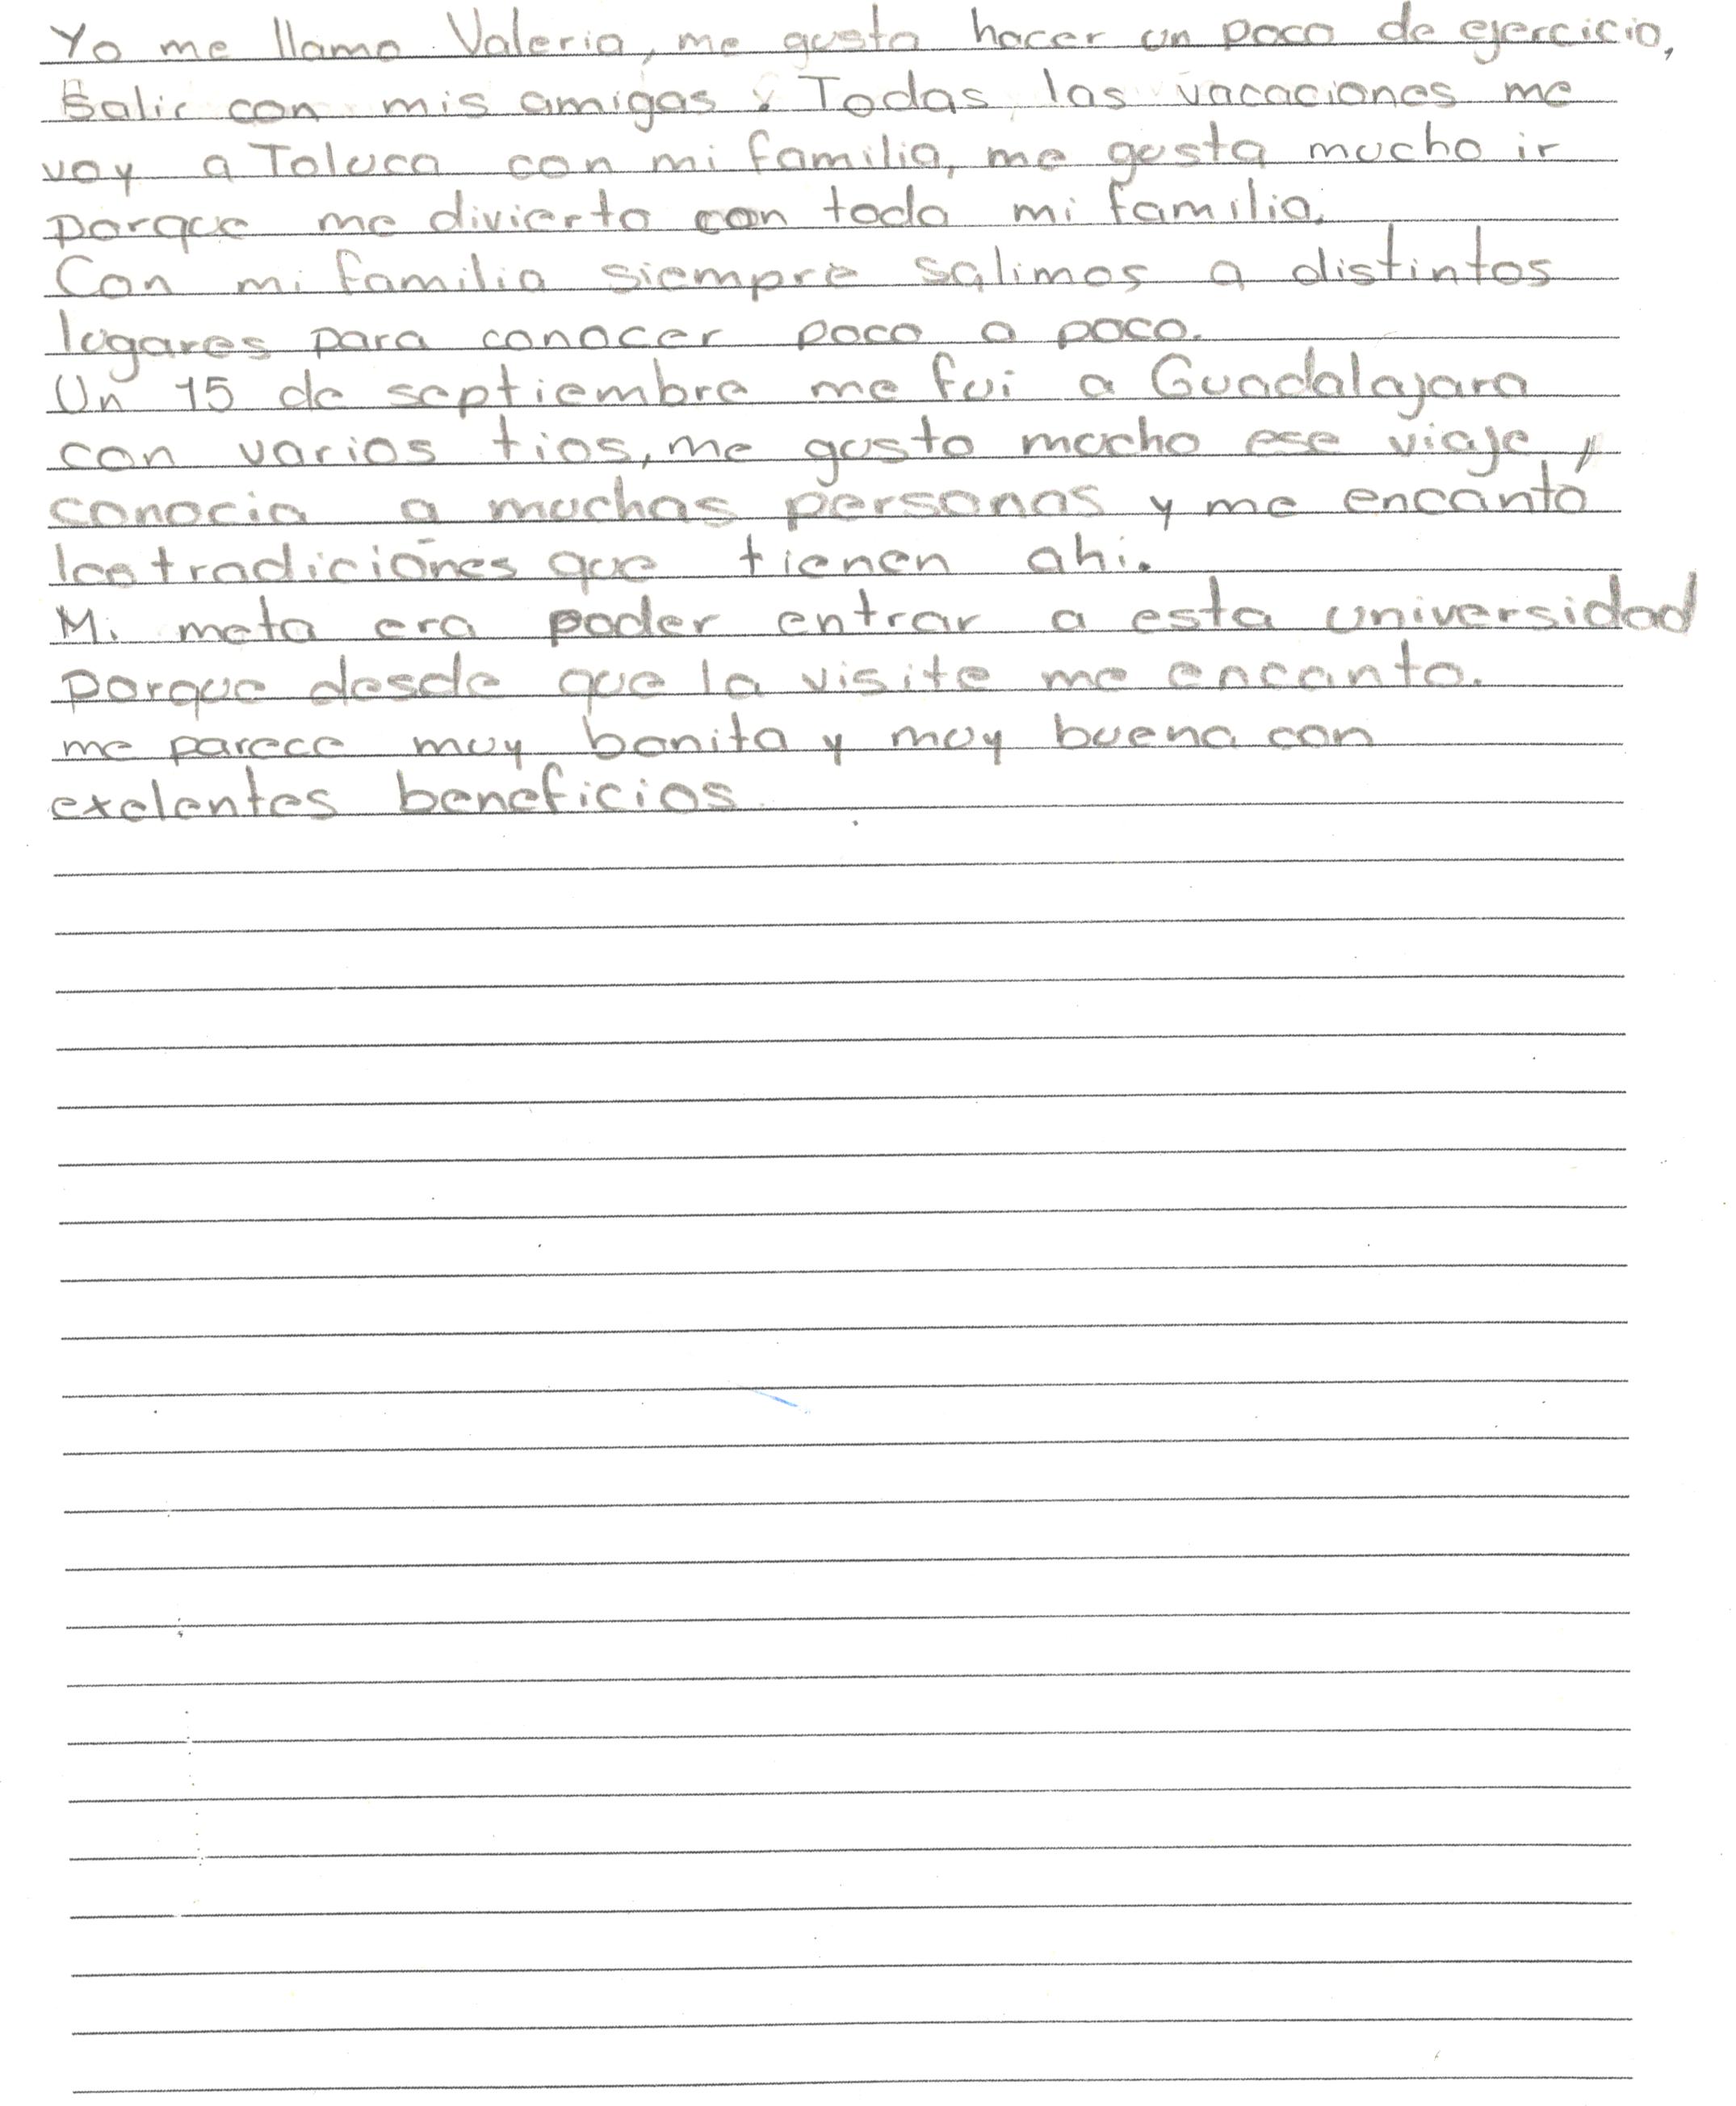 Yo me llamo Valeria, me gusta hacer un poco de ejercicio,
Salir con mis amigas. Todas las vacaciones me
voy a Toluca con mi familia, me gusta mucho ir
porque me divierto con toda mi familia.
Con mi familia siempre salimos a distintos
lugares para conocer poco a poco.
Un 15 de septiembre me fui a Guadalajara
con varios tios, me gusto mucho ese viaje,
conocia a muchas personas y me encanto
las tradiciones que tienen ahi.
Mi meta era poder entrar a esta universidad
porque desde que la visite me encanto.
me parece muy bonita y muy buena con
exelentes beneficios